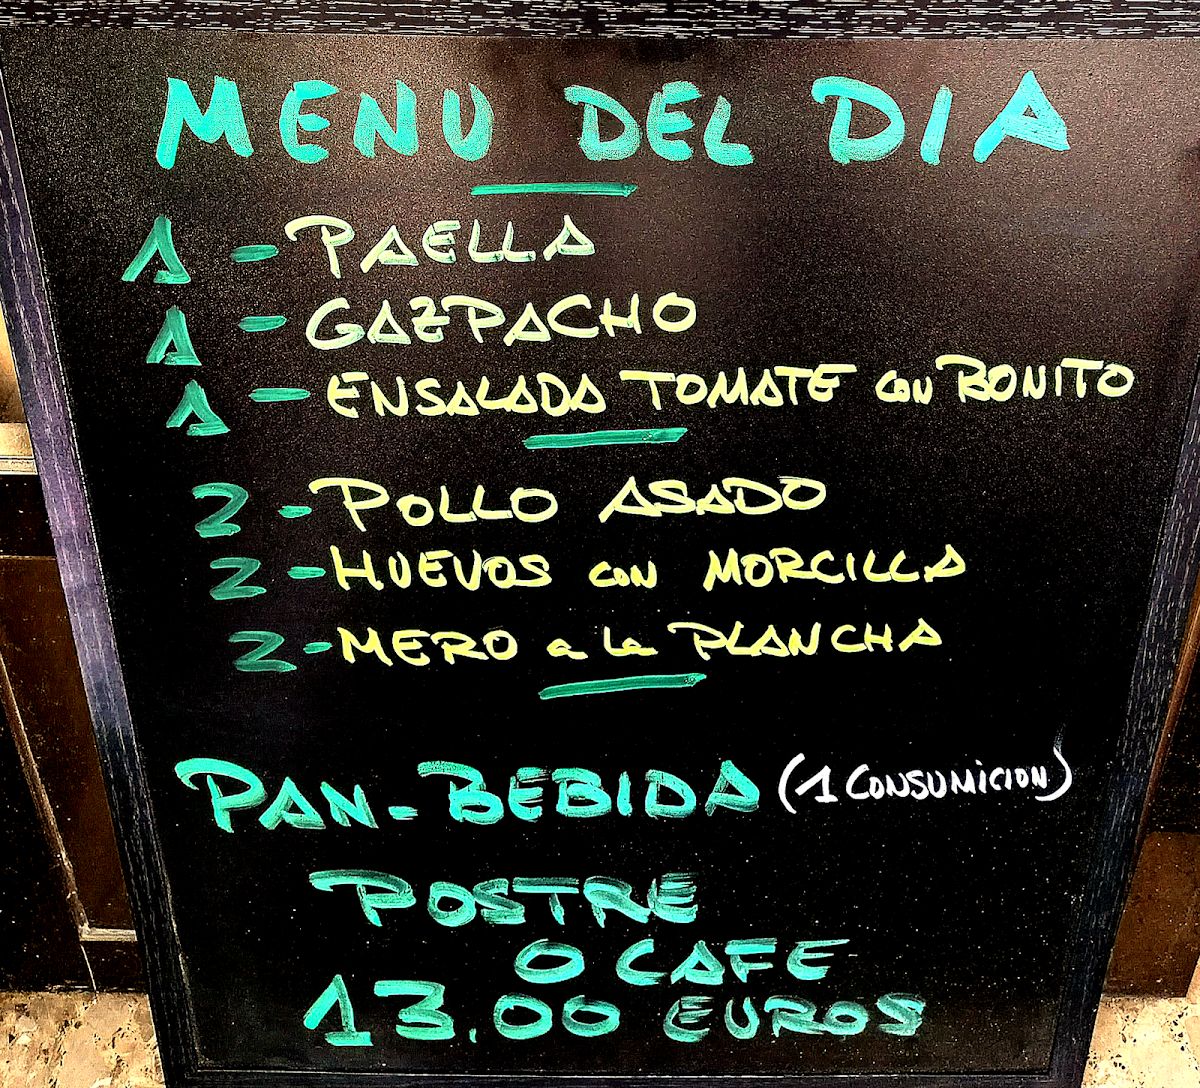 MENU DEL DIA
1 - PAELLA
1 - GAZPACHO
1 - ENSALADA TOMATE con BONITO
2 - POLLO ASADO
2 - HUEVOS con MORCILLA
2 - MERO a la PLANCHA
PAN - BEBIDA (1 CONSUMICION)
POSTRE
O CAFE
13.00 EUROS